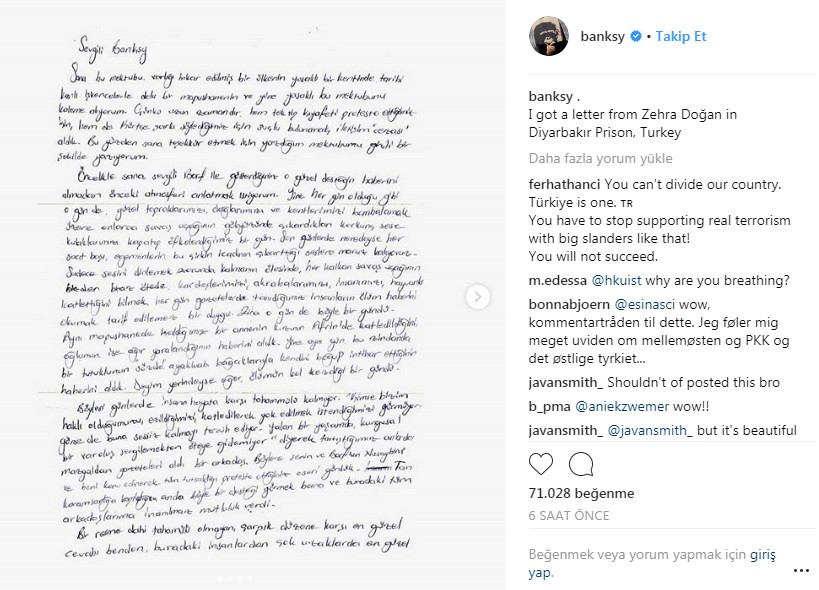 Sevgili Banksy
Sana bu mektubu varlığı inkar edilmiş bir ülkenin yasaklı bir kentinde tarihi
kanlı işkencelerle dolu bir mapushanenin ve yine yasaklı bu mektubumu
kaleme alıyorum. Çünkü uzun zamandır, hem tek tip kıyafeti protesto ettiğimiz
için, hem de Kürtçe şarkı söylediğimiz için suçlu bulunarak, iletişim cezası
aldık. Bu yüzden sana teşekkür etmek için yazdığım mektubumu gizli bir
şekilde yazıyorum.
Öncelikle sana sevgili Borf ile gösterdiğiniz o güzel desteğin haberini
almadan önceki atmosferi anlatmak istiyorum. Yine her gün olduğu gibi
o gün de, güzel topraklarımızı, dağlarımızı ve kentlerimizi bombalamak
üzere onlarca savaş uçağının gökyüzünde çıkardıkları korkunç sese
kulaklarımızı kapatıp öfkelendiğimiz bir gün. Son günlerde neredeyse her
saat başı, egemenlerin bu çirkin icadının çıkarttığı seslere maruz kalıyoruz.
Sadece sesini dinlemek zorunda kalmanın ötesinde, her kalkan savaş uçağının
kardeşlerimizi, akrabalarımızı, insanımızı, hayvanını
katlettiğini bilmek, her gün gazetelerde tanıdığımız insanların ölüm haberini
okumak tarif edilemez bir duygu. O gün de böyle bir gündü.
Aynı mapushanede kaldığımız bir annenin kızının Afrin'de katledildiğini,
oğlunun ise ağır yaralandığının haberini aldık. Yine aynı gün, bu zindanda
bir tutuklunun sözde ayakkabı bağcıklarıyla kendini boğup intihar ettiğinin
haberini aldık. Deyim yerindeyse eğer, ölümün kol gezdiği bir gündü.
Böylesi günlerde insanın hayata karşı tahammülü kalmıyor. "Kimse bizim
haklı olduğumuzu, ezildiğimizi, katledilerek yok edilmek istendiğimizi görmüyor
görse de buna sessiz kalmayı tercih ediyor. Yalan bir yaşamda, kurgusal
bir varoluş sergilemekten öteye gidemiyor" diyerek tartıştığımız anlarda
mazgaldan gazeteleri aldı bir arkadaş. Böylece senin ve Borf'un Nusaybin'i
ve beni konu edinerek tüm tutsaklığı protesto ettiğiniz eseri gördük. Tam
karamsarlığa kapıldığımız anda böyle bir desteği görmek bana ve buradaki tüm
arkadaşlarıma inanılmaz mutluluk verdi.
Bir resme dahi tahamülü olmayan, çarpık düzene karşı en güzel
cevabı benden, buradaki insanlardan çok uzaklarda en güzel
banksy • Takip Et
banksy .
I got a letter from Zehra Doğan in
Diyarbakır Prison, Turkey
Daha fazla yorum yükle
ferhathanci You can't divide our country.
Türkiye is one. TR
You have to stop supporting real terrorism
with big slanders like that!
You will not succeed.
m.edessa @hkuist why are you breathing?
bonnabjoern @esinasci wow,
kommentartråden til dette. Jeg føler mig
meget uviden om mellemøsten og PKK og
det østlige tyrkiet...
javansmith_ Shouldn't of posted this bro
b_pma @aniekzwemer wow!!
javansmith_ @javansmith_ but it's beautiful
71.028 beğenme
6 SAAT ÖNCE
Beğenmek veya yorum yapmak için giriş
yap.